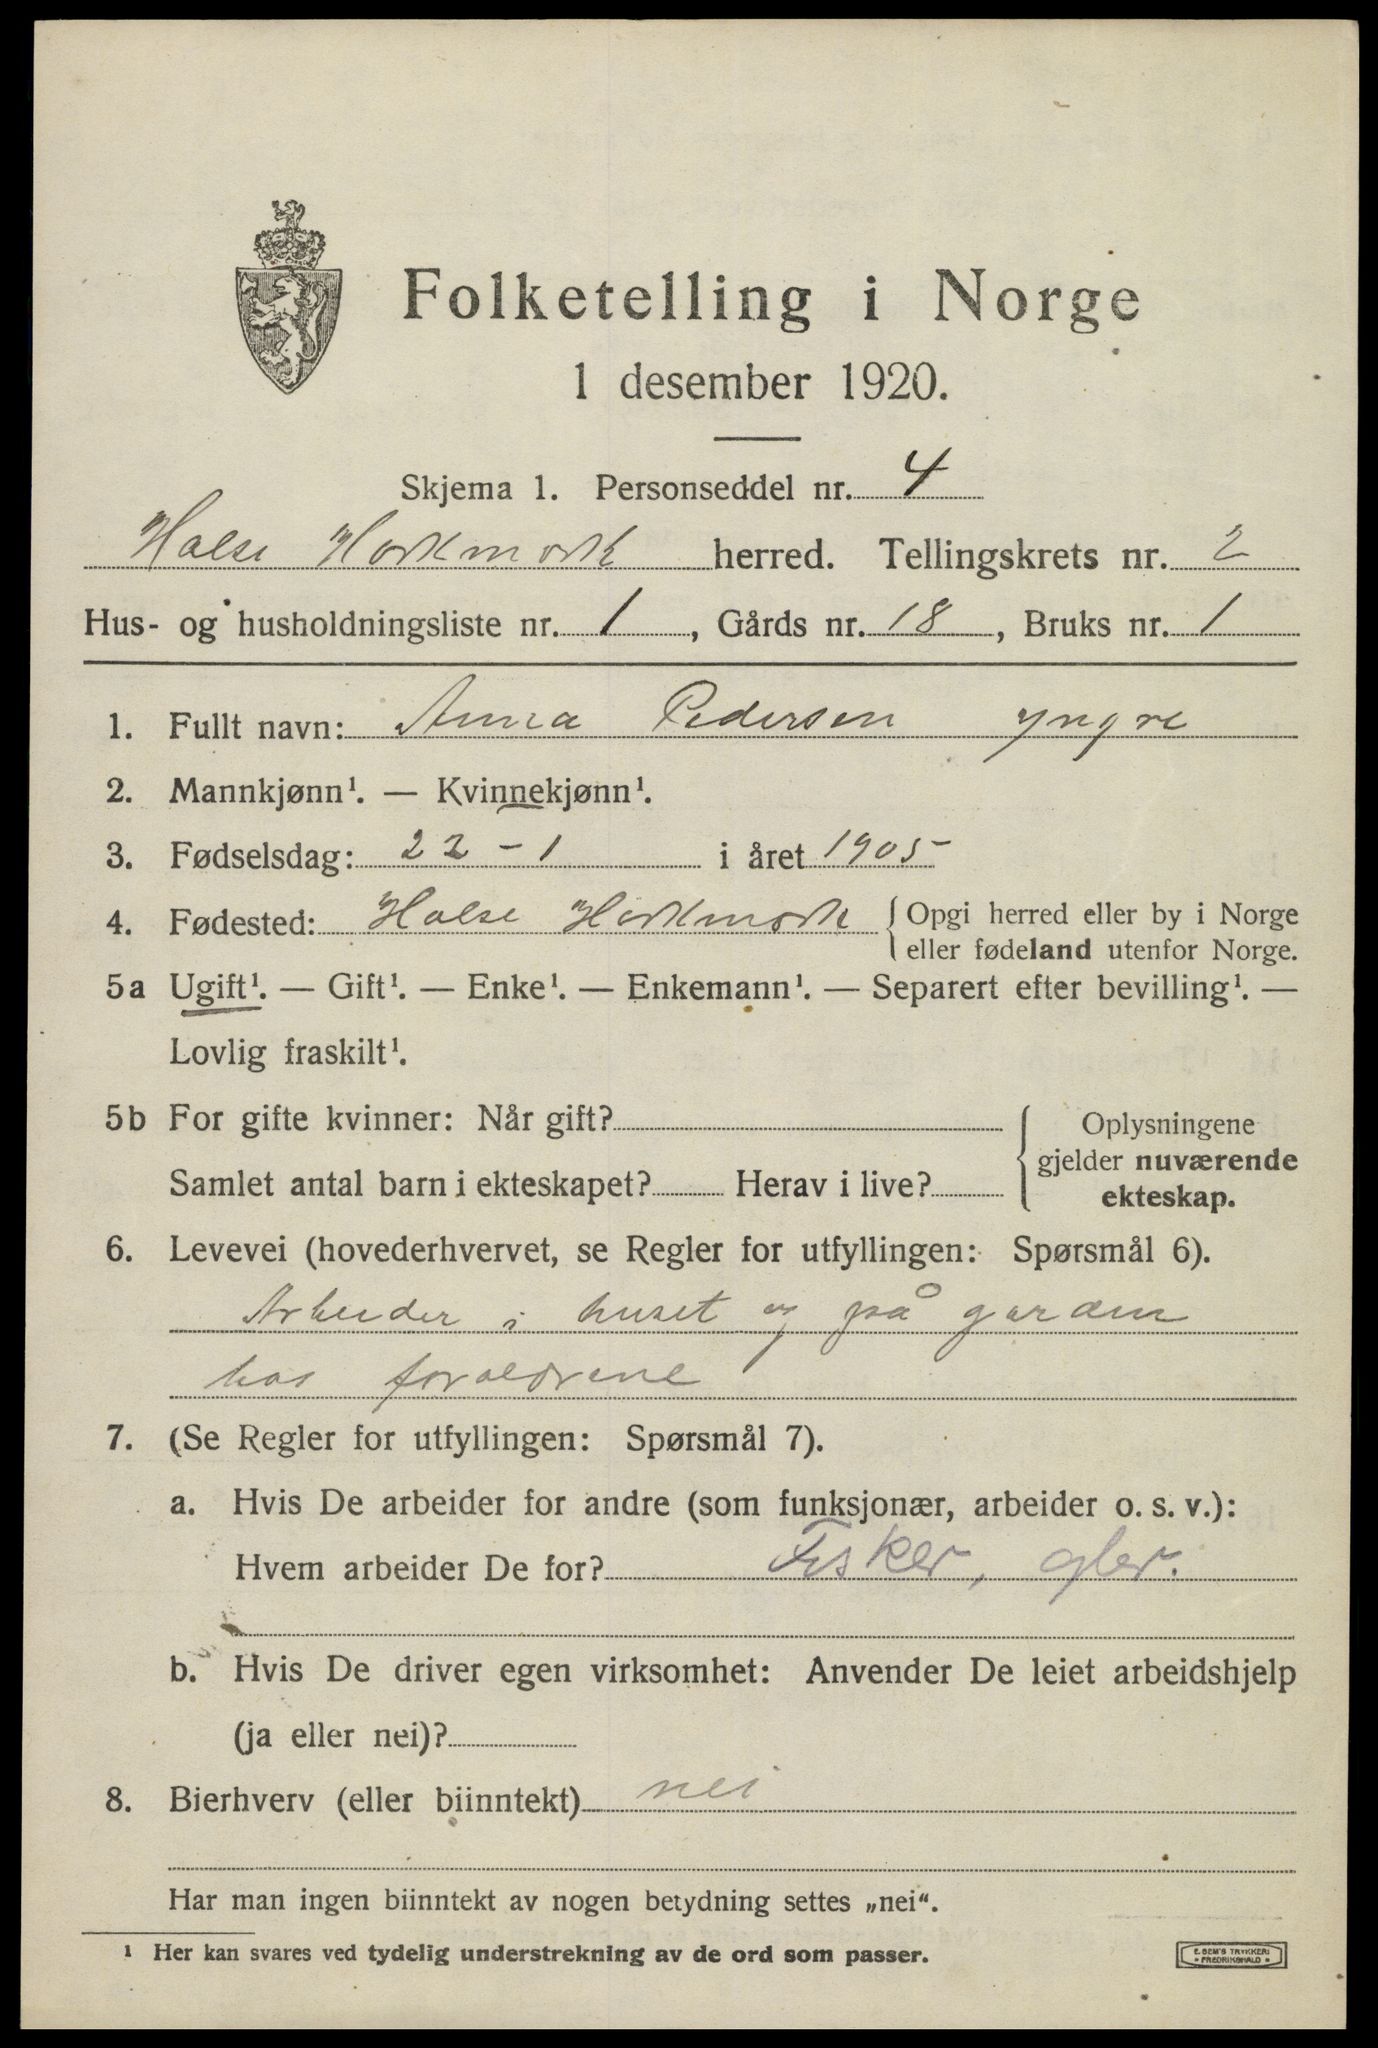 Folketelling i Norge
1 desember 1920.
Skjema 1. Personseddel nr. 4
Halse Harkmark herred. Tellingskrets nr. 2
Hus- og husholdningsliste nr. 1, Gårds nr. 18, Bruks nr. 1
1. Fullt navn: Anna Pedersen yngre
2. Mannkjønn¹. — Kvinnekjønn¹.
3. Fødselsdag: 22 - 1 i året 1905
4. Fødested: Halse Harkmark { Opgi herred eller by i Norge
eller fødeland utenfor Norge.
5a Ugift¹. — Gift¹. — Enke¹. — Enkemann¹. — Separert efter bevilling¹. —
Lovlig fraskilt¹.
5b For gifte kvinner: Når gift? { Oplysningene
gjelder nuværende
Samlet antal barn i ekteskapet? Herav i live? ekteskap.
6. Levevei (hovederhvervet, se Regler for utfyllingen: Spørsmål 6).
Arbeider i huset og på garden
hos foraldrene
7. (Se Regler for utfyllingen: Spørsmål 7).
a. Hvis De arbeider for andre (som funksjonær, arbeider o. s. v.):
Hvem arbeider De for? Fisker, gbr.
b. Hvis De driver egen virksomhet: Anvender De leiet arbeidshjelp
(ja eller nei)?
8. Bierhverv (eller biinntekt) nei
Har man ingen biinntekt av nogen betydning settes „nei“.
¹ Her kan svares ved tydelig understrekning av de ord som passer.
E. SEM'S TRYKKERI
FREDRIKSHALD